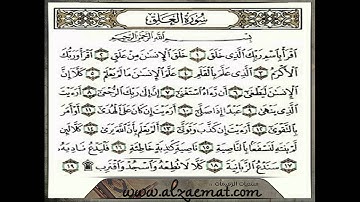 سُورَةُ الْعَلَقِ
بِسْمِ اللَّهِ الرَّحْمَٰنِ الرَّحِيمِ
اقْرَأْ بِاسْمِ رَبِّكَ الَّذِي خَلَقَ ١ خَلَقَ الْإِنسَانَ مِنْ عَلَقٍ ٢ اقْرَأْ وَرَبُّكَ
الْأَكْرَمُ ٣ الَّذِي عَلَّمَ بِالْقَلَمِ ٤ عَلَّمَ الْإِنسَانَ مَا لَمْ يَعْلَمْ ٥ كَلَّا إِنَّ
الْإِنسَانَ لَيَطْغَىٰ ٦ أَن رَّآهُ اسْتَغْنَىٰ ٧ إِنَّ إِلَىٰ رَبِّكَ الرُّجْعَىٰ ٨ أَرَأَيْتَ
الَّذِي يَنْهَىٰ ٩ عَبْدًا إِذَا صَلَّىٰ ١٠ أَرَأَيْتَ إِن كَانَ عَلَى الْهُدَىٰ ١١ أَوْ أَمَرَ
بِالتَّقْوَىٰ ١٢ أَرَأَيْتَ إِن كَذَّبَ وَتَوَلَّىٰ ١٣ أَلَمْ يَعْلَم بِأَنَّ اللَّهَ يَرَىٰ ١٤ كَلَّا لَئِن
لَّمْ يَنتَهِ لَنَسْفَعًا بِالنَّاصِيَةِ ١٥ نَاصِيَةٍ كَاذِبَةٍ خَاطِئَةٍ ١٦ فَلْيَدْعُ نَادِيَهُ
١٧ سَنَدْعُ الزَّبَانِيَةَ ١٨ كَلَّا لَا تُطِعْهُ وَاسْجُدْ وَاقْتَرِب ۩ ١٩
www.alzaemat.com